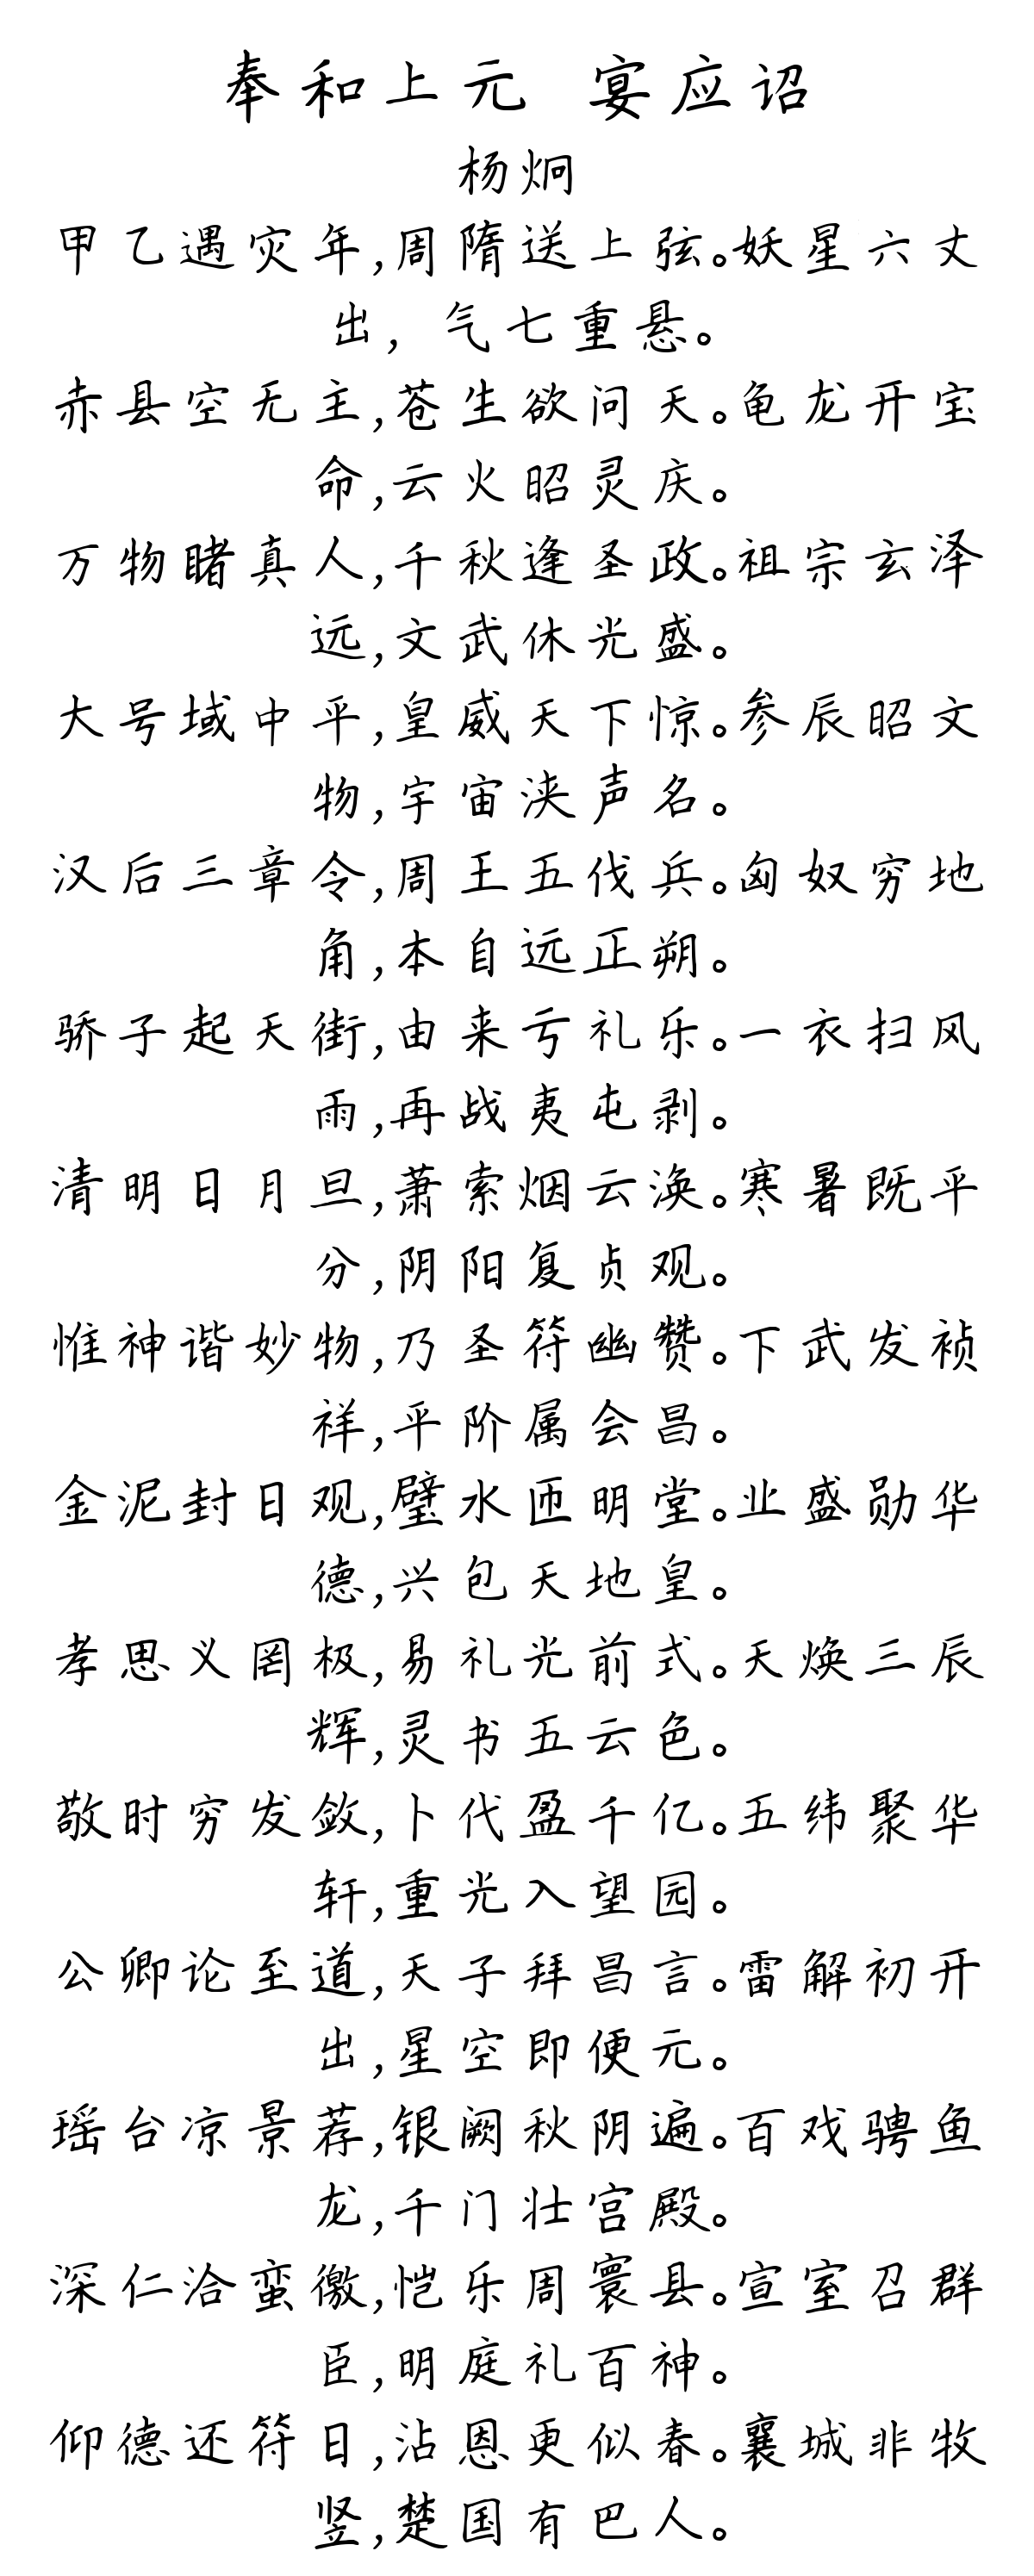 奉和上元 宴应诏
杨炯
甲乙遇灾年,周隋送上弦。妖星六丈
出, 气七重悬。
赤县空无主,苍生欲问天。龟龙开宝
命,云火昭灵庆。
万物睹真人,千秋逢圣政。祖宗玄泽
远,文武休光盛。
大号域中平,皇威天下惊。参辰昭文
物,宇宙浃声名。
汉后三章令,周王五伐兵。匈奴穷地
角,本自远正朔。
骄子起天街,由来亏礼乐。一衣扫风
雨,再战夷屯剥。
清明日月旦,萧索烟云涣。寒暑既平
分,阴阳复贞观。
惟神谐妙物,乃圣符幽赞。下武发祯
祥,平阶属会昌。
金泥封日观,璧水匝明堂。业盛勋华
德,兴包天地皇。
孝思义罔极,易礼光前式。天焕三辰
辉,灵书五云色。
敬时穷发敛,卜代盈千亿。五纬聚华
轩,重光入望园。
公卿论至道,天子拜昌言。雷解初开
出,星空即便元。
瑶台凉景荐,银阙秋阴遍。百戏骋鱼
龙,千门壮宫殿。
深仁洽蛮徼,恺乐周寰县。宣室召群
臣,明庭礼百神。
仰德还符日,沾恩更似春。襄城非牧
竖,楚国有巴人。